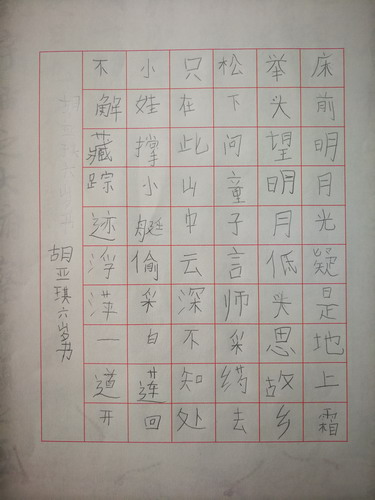 床前明月光疑是地上霜
举头望明月低头思故乡
松下问童子言师采药去
只在此山中云深不知处
小娃撑小艇偷采白莲回
不解藏踪迹浮萍一道开
胡亚琪六岁男